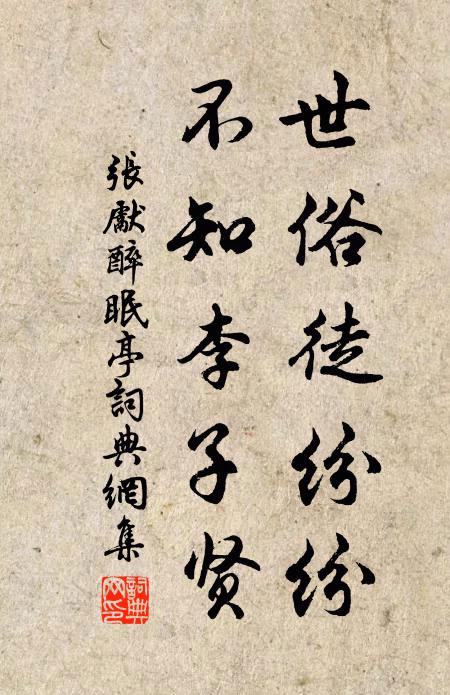 世俗徒纷纷
不知李子贤
張獻醉眠亭詞典網集
詞典網印